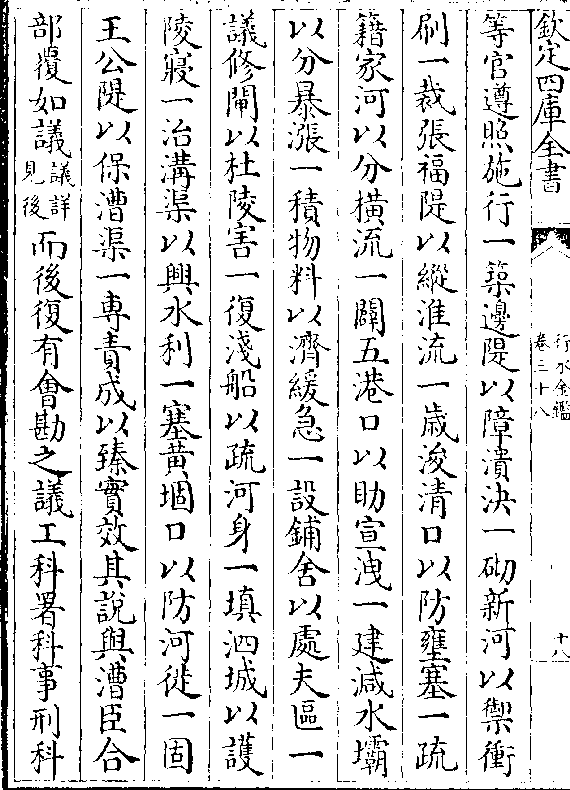 欽定四庫全書
行水金鑑
卷三十八
十八
等官遵照施行一築邊隄以障潰決一砌新河以禦衝
刷一裁張福隄以縱淮流一歲浚清口以防壅塞一疏
籍家河以分橫流一闢五港口以助宣洩一建減水壩
以分暴漲一積物料以濟緩急一設鋪舍以處夫區一
議修閘以杜陵害一復淺船以疏河身一填泗城以護
陵寢一治溝渠以興水利一塞黃堌口以防河徙一固
王公隄以保漕渠一專責成以臻實效其說與漕臣合
部覆如議議詳見後而後復有會勘之議工科署科事刑科